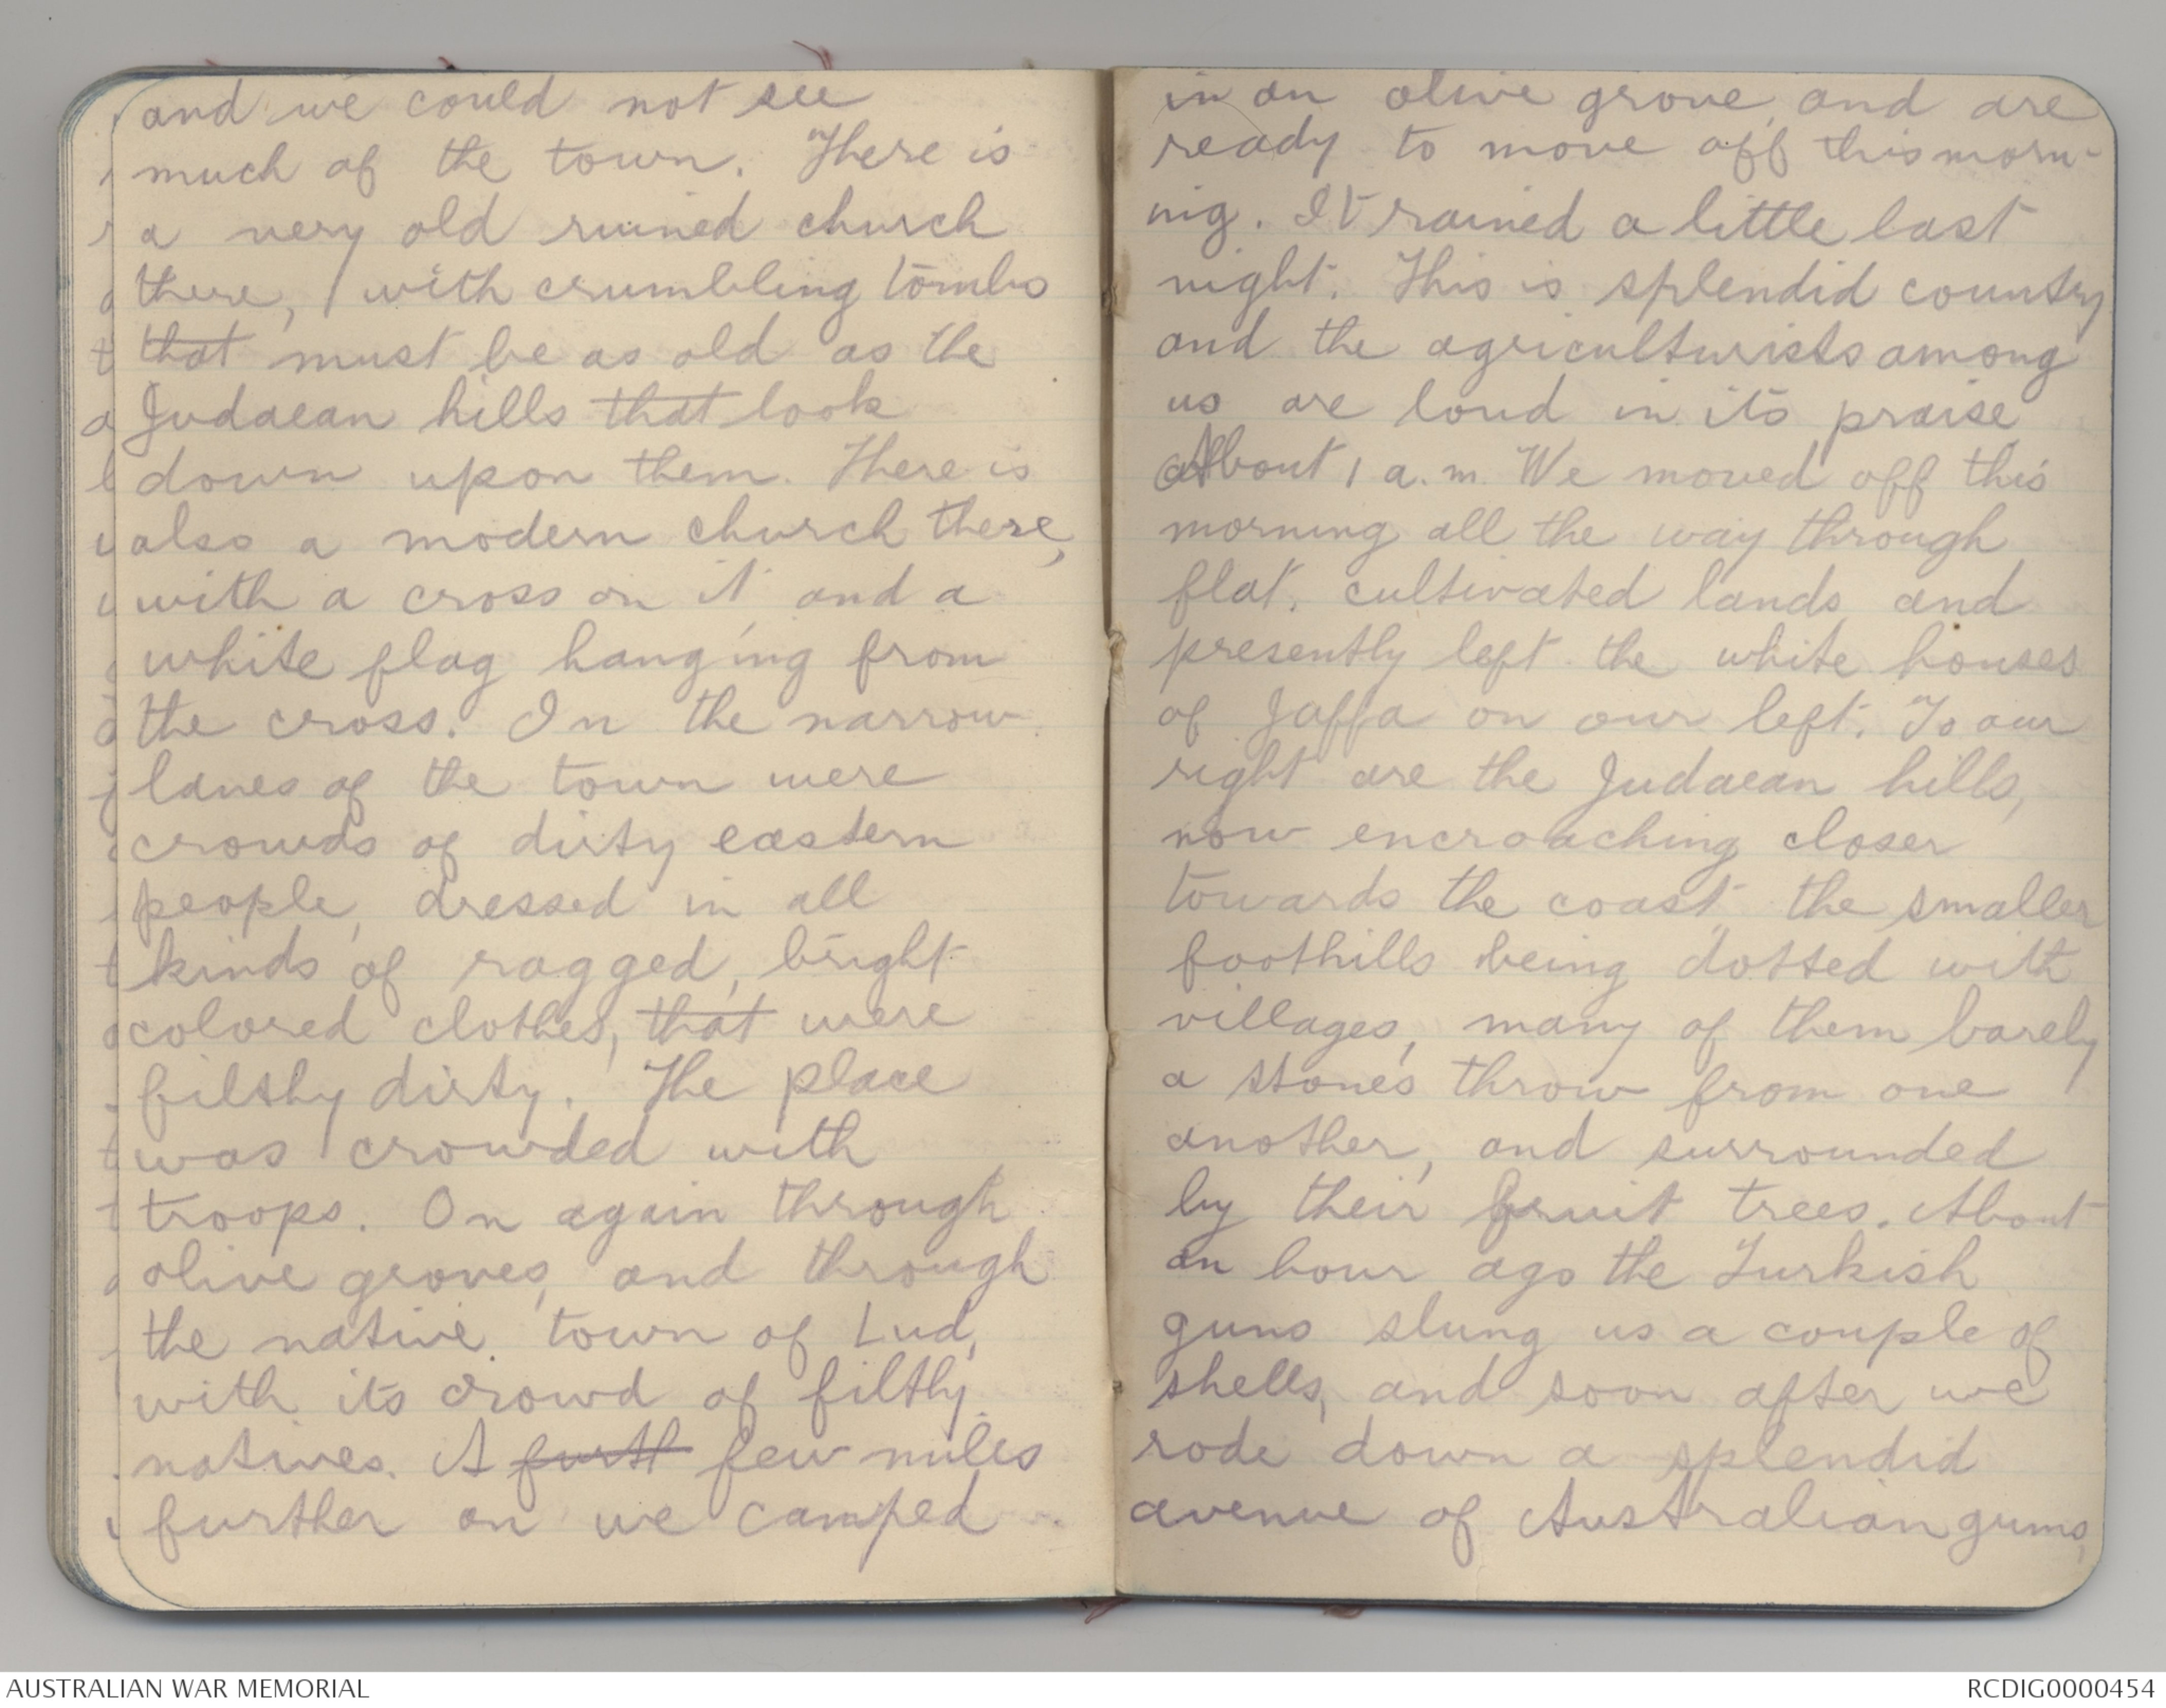 and we could not see
much of the town. There is
a very old ruined church
there, with crumbling tombs
that must be as old as the
Judaean hills that look
down upon them. There is
also a modern church there,
with a cross on it and a
white flag hanging from
the cross. In the narrow
lanes of the town were
crowds of dirty eastern
people, dressed in all
kinds of ragged, bright
colored clothes, that were
filthy dirty. The place
was crowded with
troops. On again through
olive groves, and through
the native town of Lud,
with its crowd of filthy
natives. A furth few miles
further on we camped
in an olive grove, and are
ready to move off this morn-
nig. It rained a little last
night. This is splendid country
and the agriculturists among
us are loud in its praise
About 1 a.m. We moved off this
morning all the way through
flat, cultivated lands and
presently left the white houses
of Jaffa on our left. To our
right are the Judaean hills,
now encroaching closer
towards the coast, the smaller
foothills being dotted with
villages, many of them barely
a stones throw from one
another, and surrounded
by their fruit trees. About
an hour ago the Turkish
guns slung us a couple of
shells, and soon after we
rode down a splendid
avenue of Australian gums,
AUSTRALIAN WAR MEMORIAL
RCDIG0000454